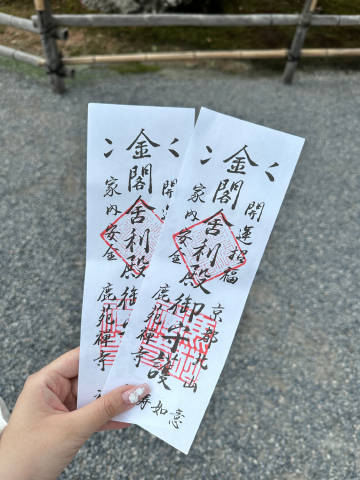 開運招福
京都北山
金閣舎利殿御守護
家内安全
鹿苑禅寺
寿如意
開
金閣舎利殿御
家内安全
鹿苑禅寺